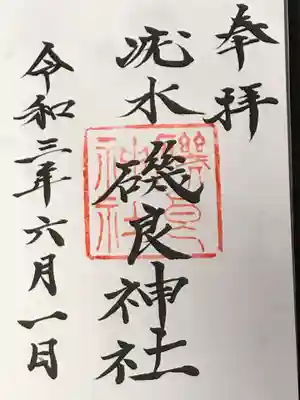 奉拝
疣水
磯良神社
令和三年六月一日
磯良
神社